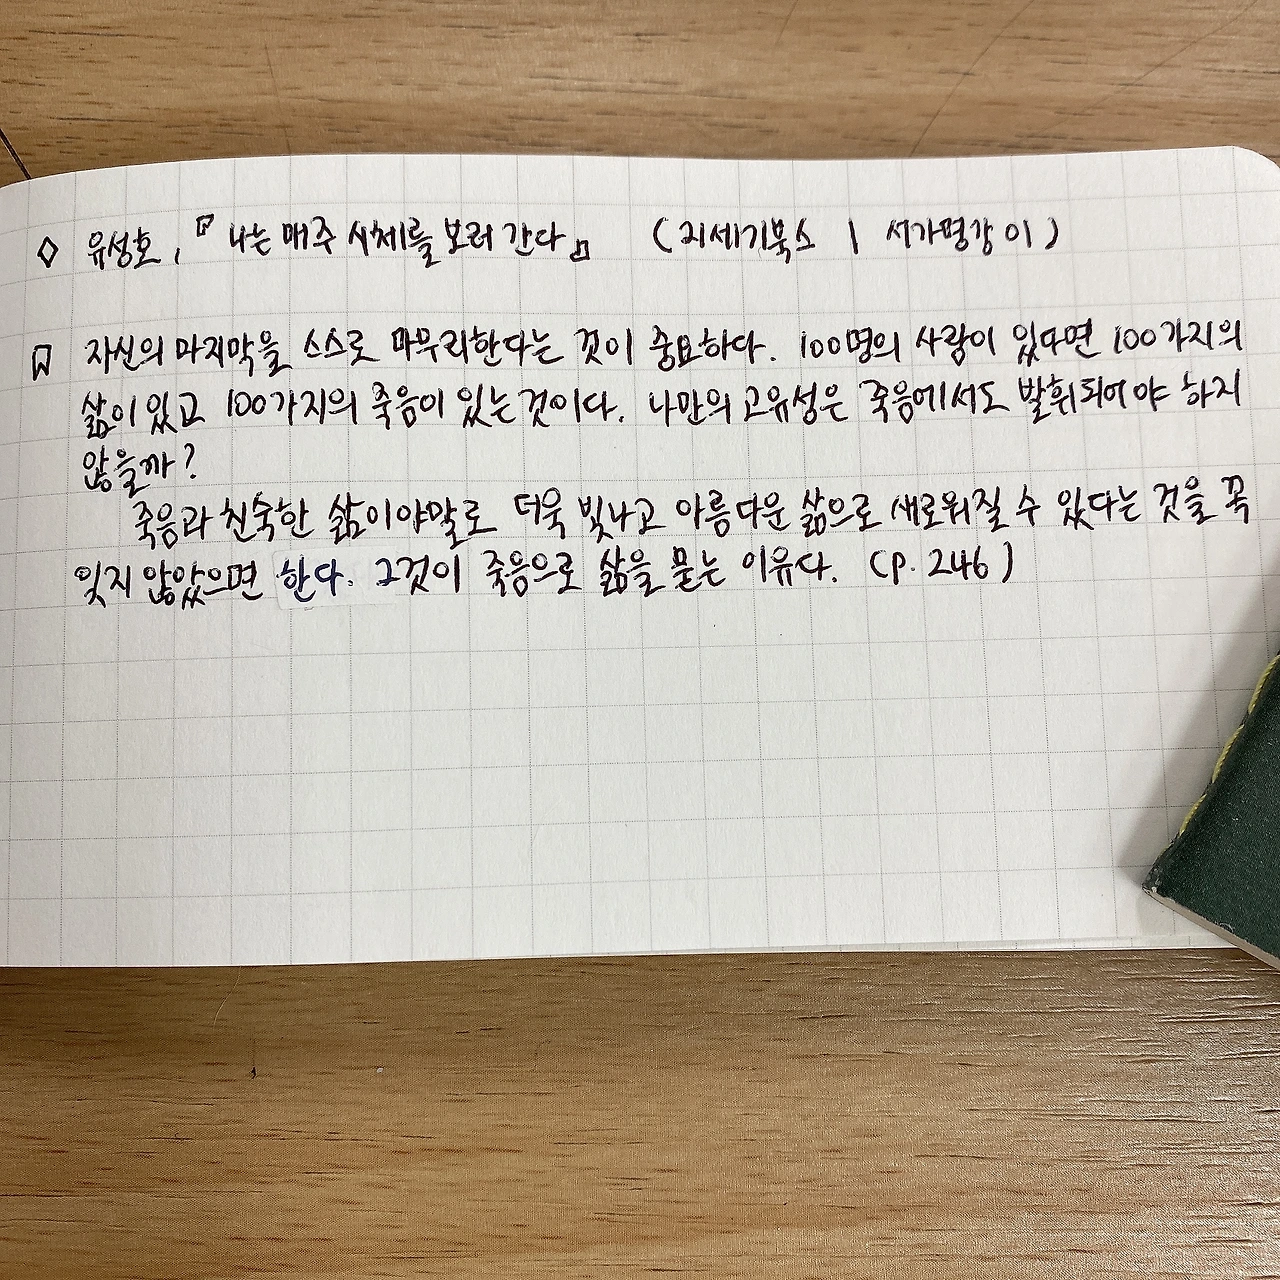 ◇ 유성호, 『나는 매주 시체를 보러 간다』 (21세기북스 | 서가명강 01)
자신의 마지막을 스스로 마무리한다는 것이 중요하다. 100명의 사람이 있다면 100가지의
삶이 있고 100가지의 죽음이 있는 것이다. 나만의 고유성은 죽음에서도 발휘되어야 하지
않을까?
죽음과 친숙한 삶이야말로 더욱 빛나고 아름다운 삶으로 새로워질 수 있다는 것을 꼭
잊지 않았으면 한다. 그것이 죽음으로 삶을 묻는 이유다. (p. 246)